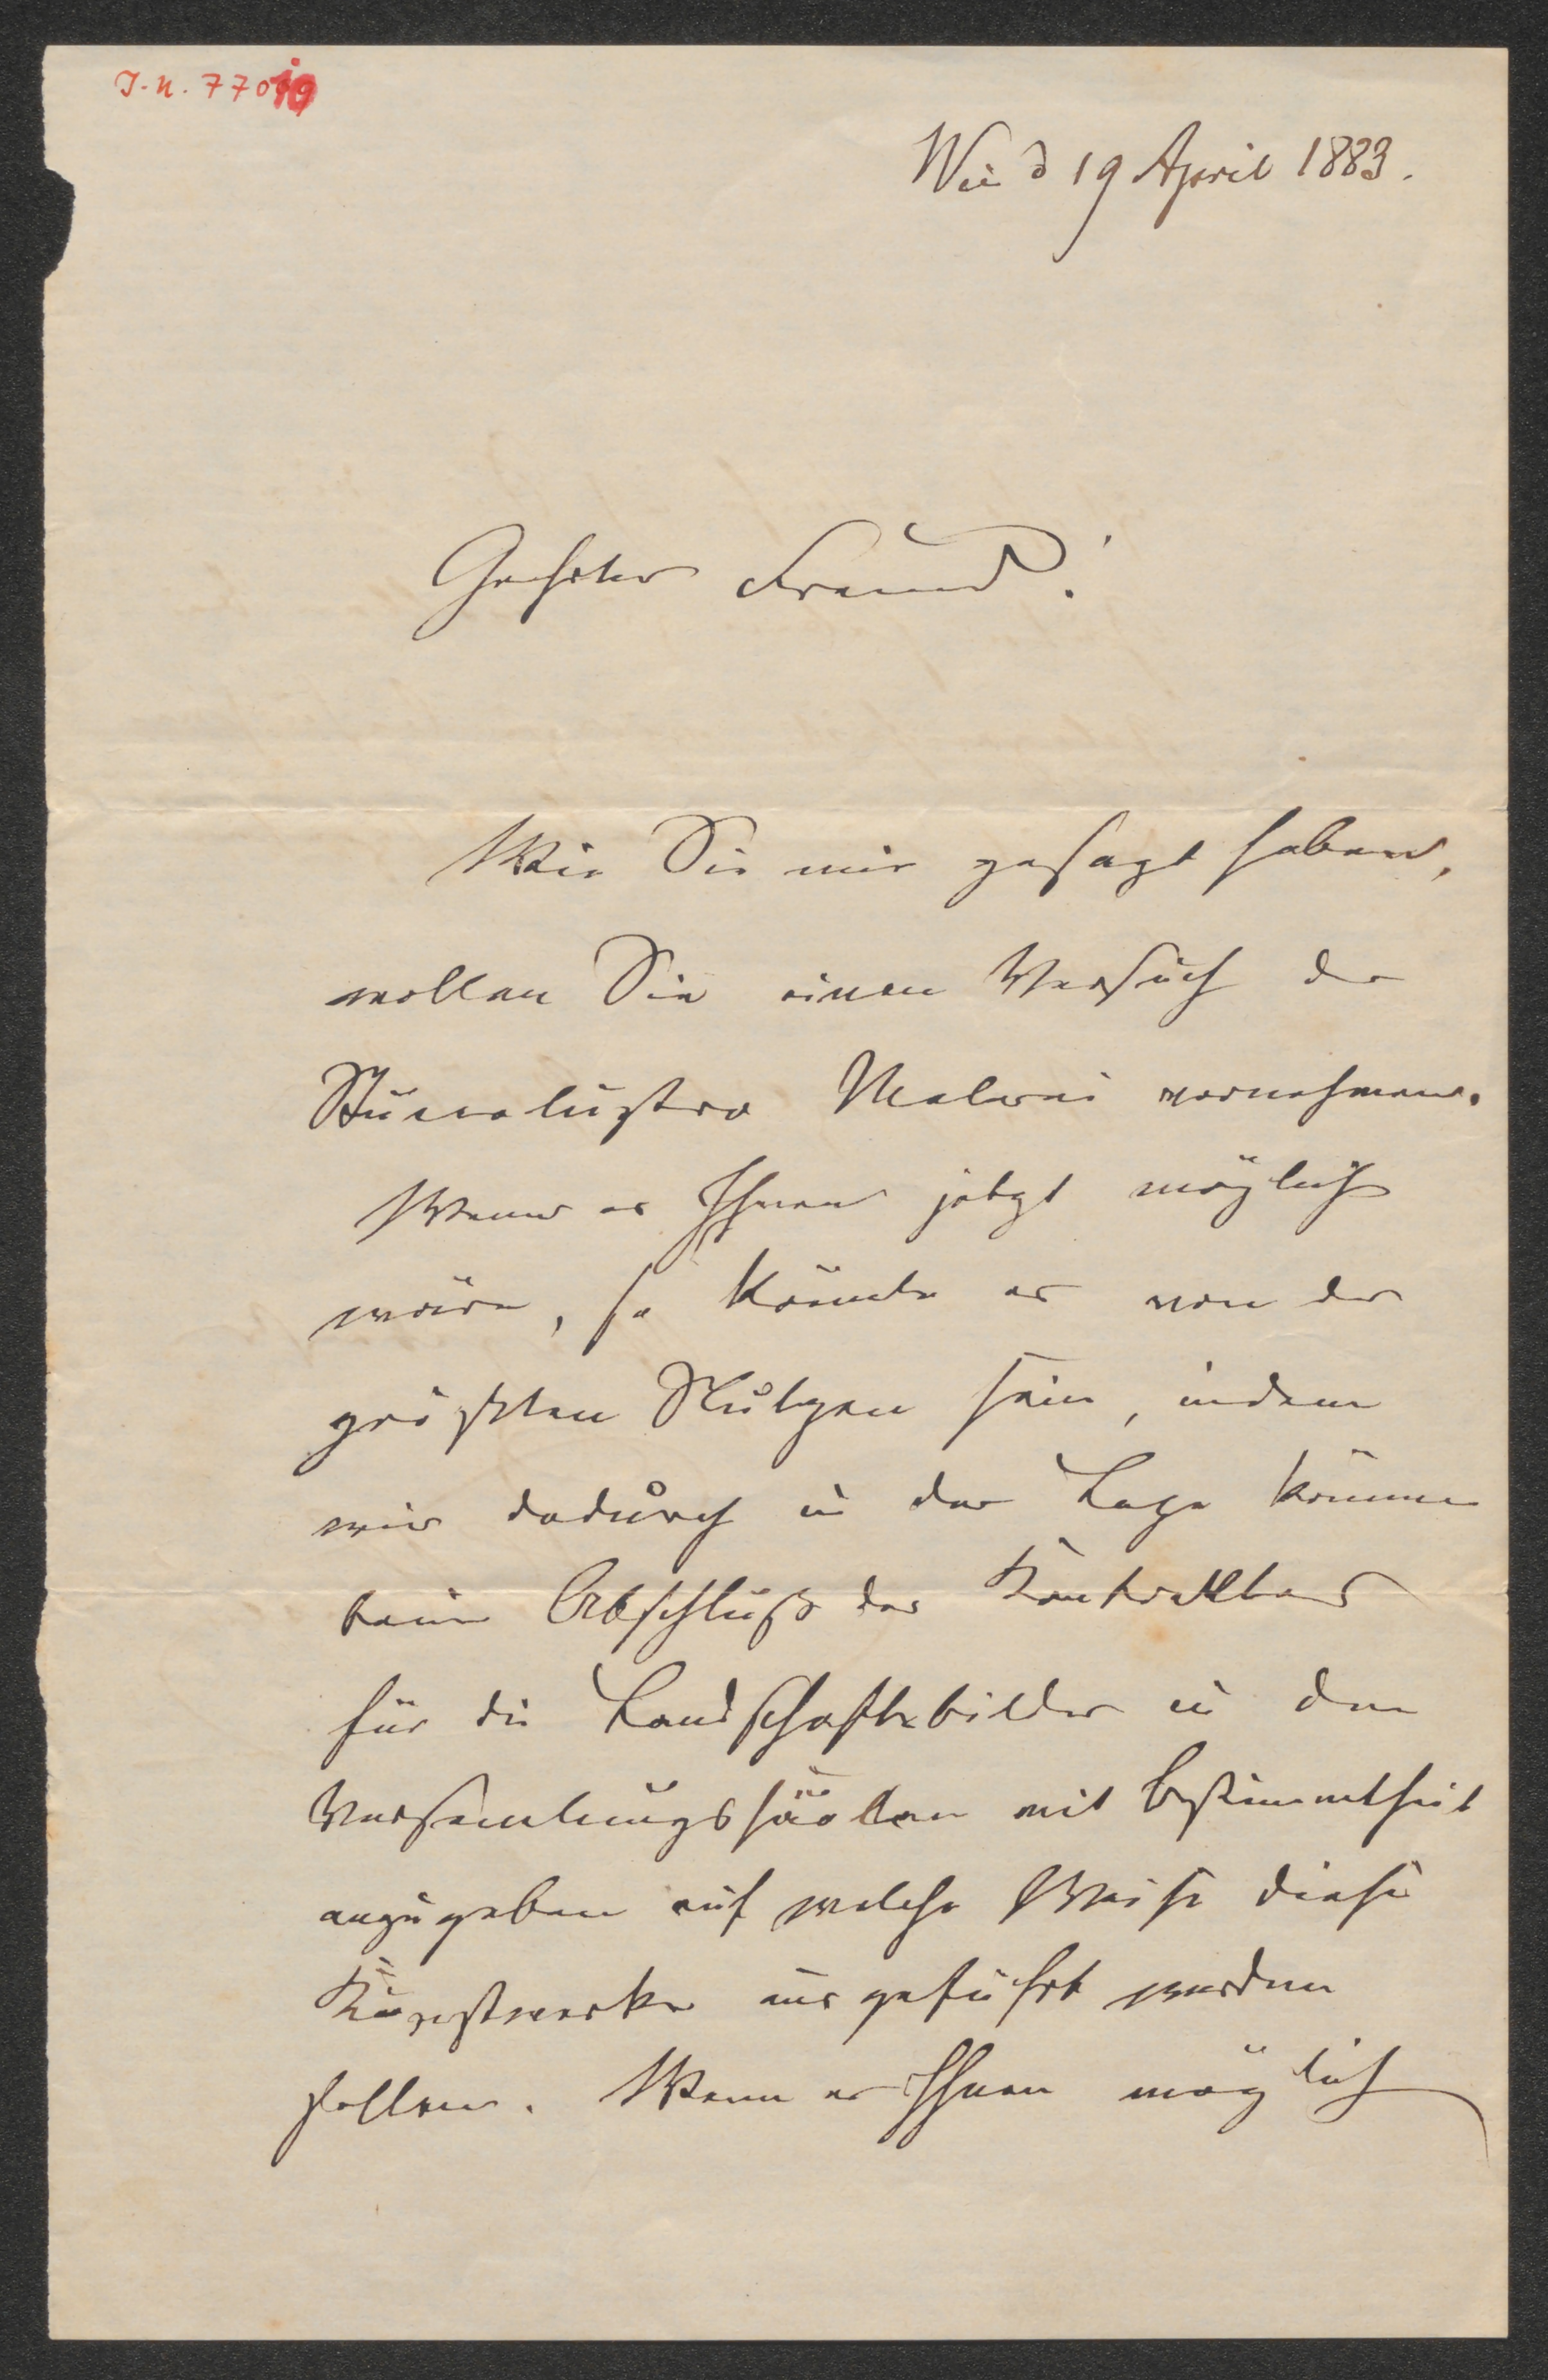 J.N. 77019
Wien d 19 April 1883.
Geehrter Freund!
Wie Sie mir gesagt haben,
wollen Sie einen Versuch der
Stuccolustro Malerei vornehmen.
Wenn es Ihnen jetzt möglich
wäre, so könnte es von der
größten Nutzen sein, indem
wir dadurch in der Lage kommen
beim Abschluß des Kontraktes
für die Landschaftsbilder in den
Versamlungssäälen mit Bestimmtheit
anzugeben auf welche Weise diese
Kunstwerke ausgeführt werden
sollen. Wenn es Ihnen möglich